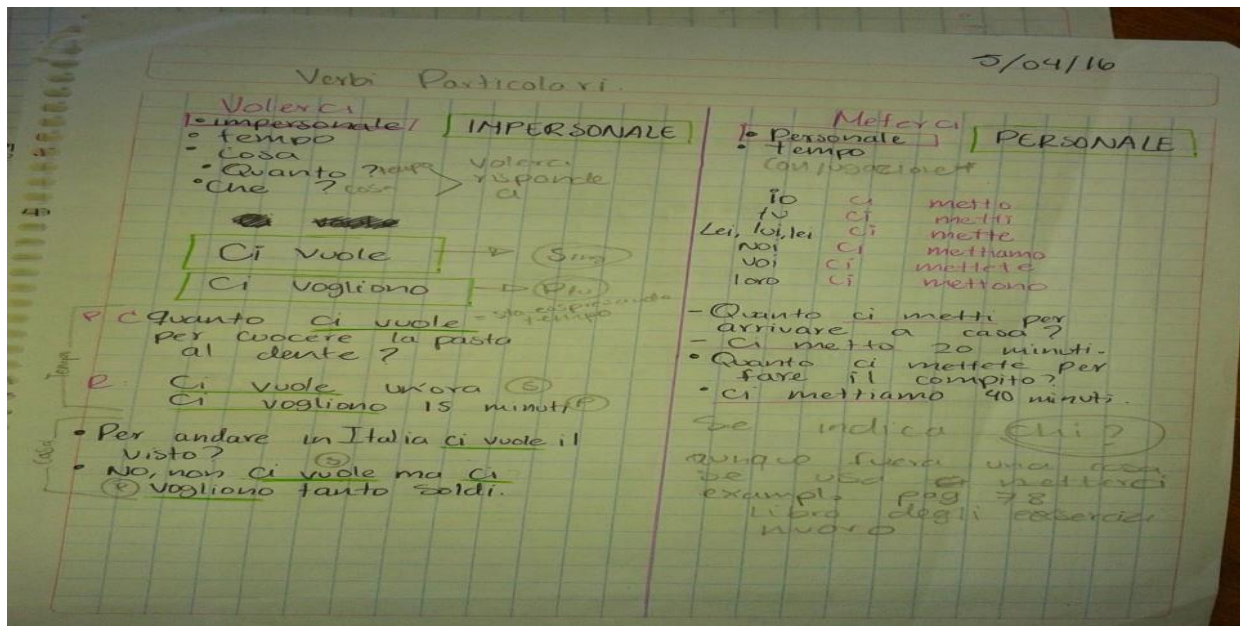 5/04/16
Verbi Particolari.
Volerci
• impersonale/ IMPERSONALE
• tempo
• Cosa
• Quanto ? tempo
• Che ? cosa
Volerci
risponde
a
Ci vuole → Sing
Ci vogliono → Plu
Tempo
P C Quanto ci vuole
per cuocere la pasta
al dente ?
tempo
R: Ci vuole un'ora (S)
Ci vogliono 15 minuti (P)
Cosa
• Per andare in Italia ci vuole il
visto? (S)
• No, non ci vuole ma ci
(P) vogliono tanto soldi.
Meterci
• Personale PERSONALE
• tempo
io ci metto
tu ci metti
Lei, lui, lei ci mette
noi ci mettiamo
voi ci mettete
loro ci mettono
- Quanto ci metti per
arrivare a casa ?
- Ci metto 20 minuti.
• Quanto ci mettete per
fare il compito?
• Ci mettiamo 40 minuti.
Se indica Chi?
aunque fuera una cosa
se usa metterci
pag 78
Libro degli
nuovo